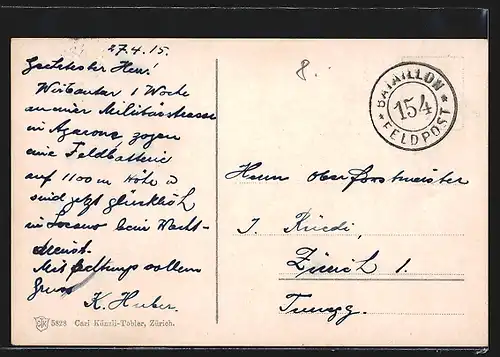 27.4.15.
Geehrtester Herr!
Wir bauten 1 Woche
an einer Militärstrasse
in Agarone, zogen
eine Feldbatterie
auf 1100 m Höhe &
sind jetzt glücklich
in Locarno beim Wacht-
dienst.
Mit
Gruss
K. Huber.
8.
BATAILLON
154
FELDPOST
Herrn Oberforstmeister
J. Rüedi,
Zürich 1.
5828 Carl Künzli-Tobler, Zürich.